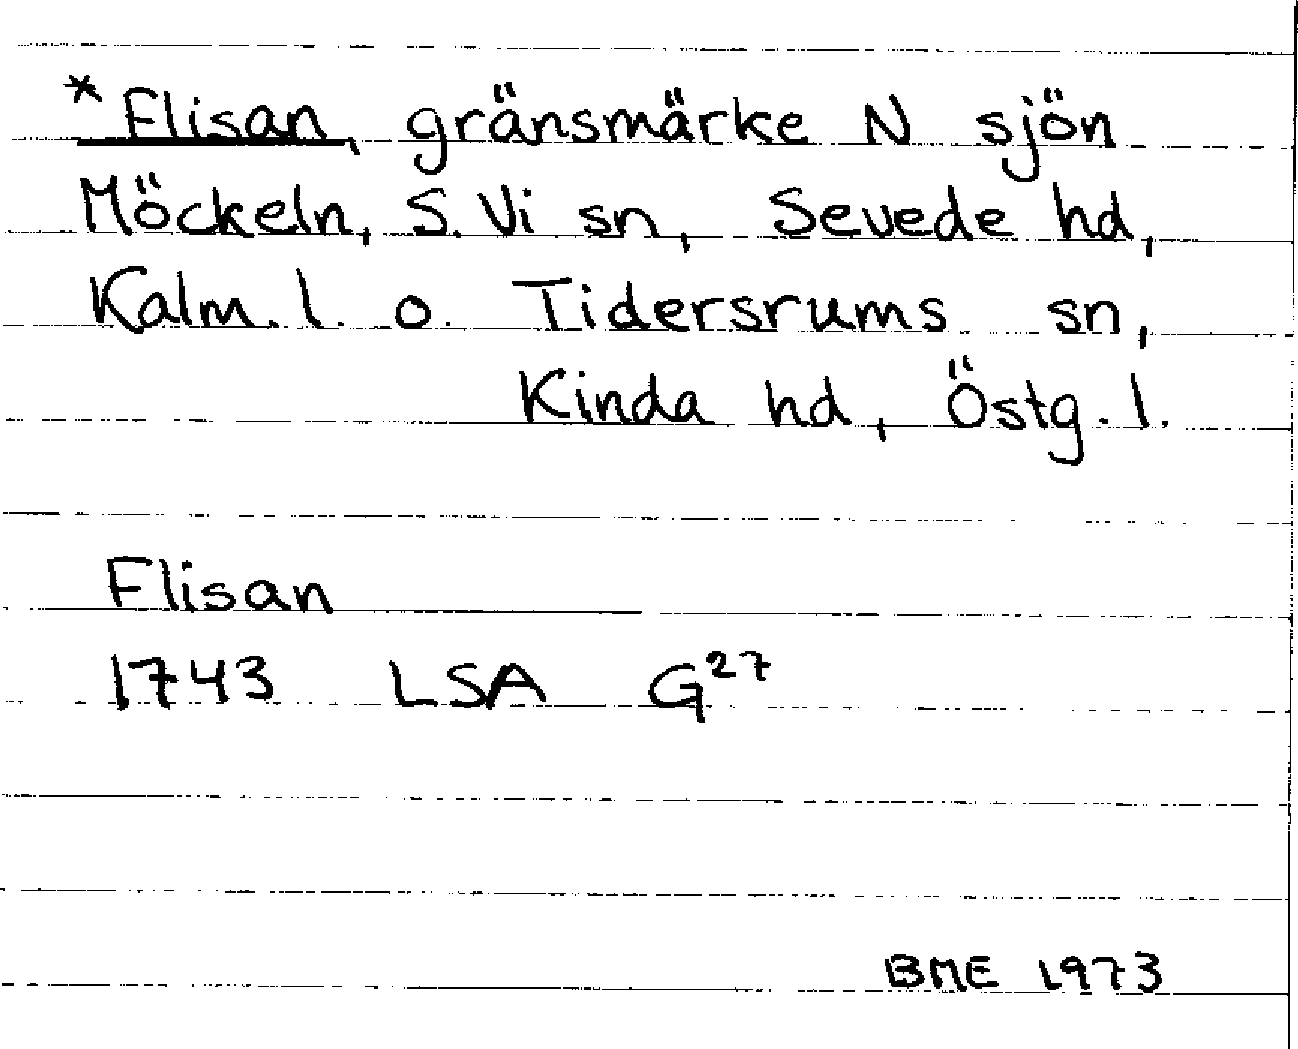 *Flisan, gränsmärke N sjön
Möckeln, S. Vi sn, Sevede hd,
Kalm. l. o. Tidersrums sn,
Kinda hd, Östg. l.
Flisan
1743 LSA G²⁷
BME 1973